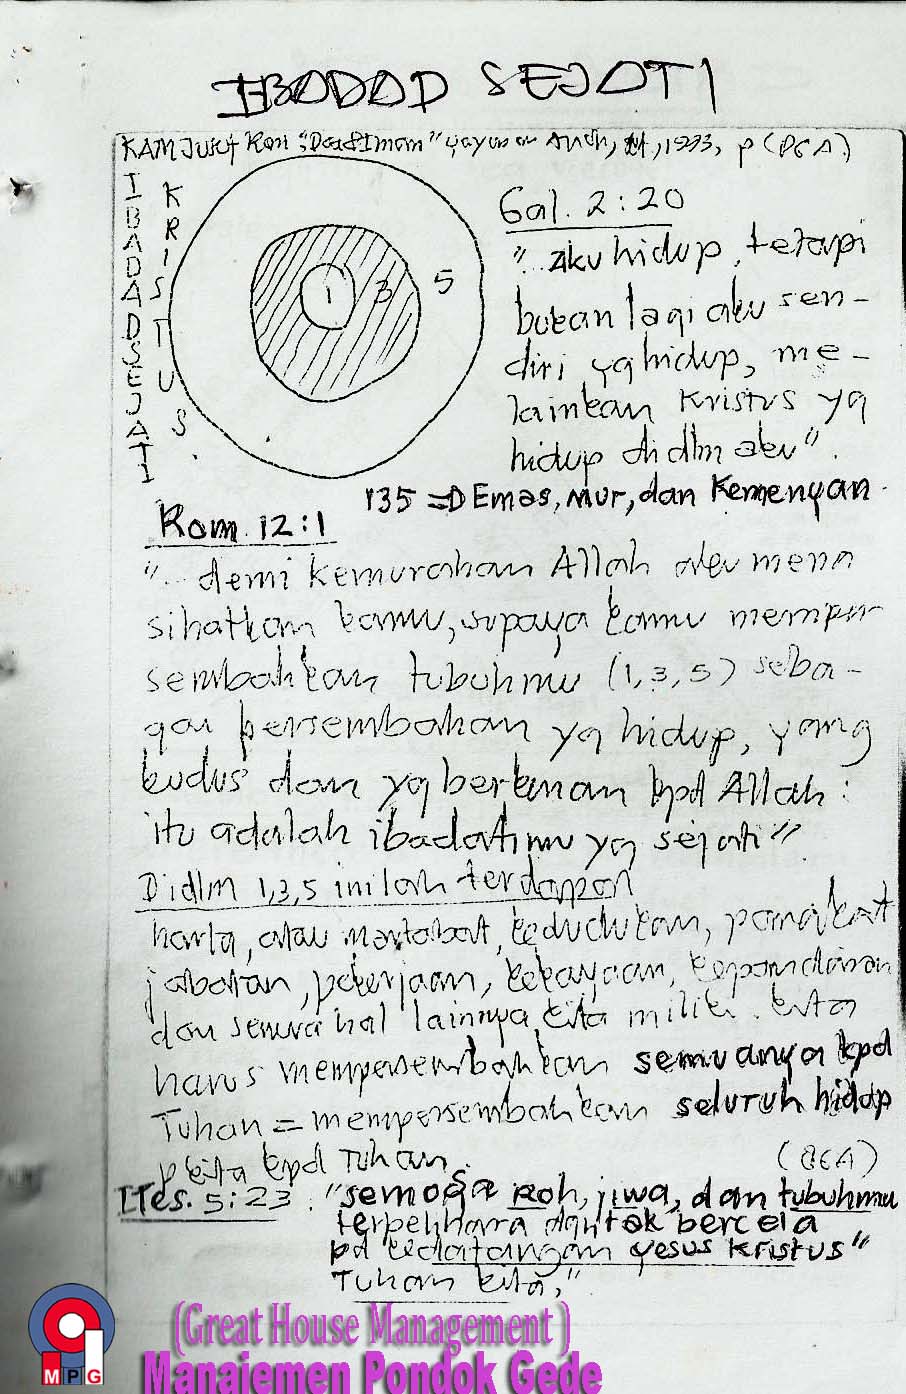 IBADAD SEJATI
KAM Jusuf Roni, "Doa & Iman" yayasan Andi, 1993, p (DEA)
IBADAD SEJATI
KRISTUS
1 3 5
Gal. 2:20
"...aku hidup, tetapi
bukan lagi aku sen-
diri yg hidup, me-
lainkan Kristus yg
hidup di dlm aku".
135 => Emas, Mur, dan Kemenyan
Rom. 12:1
"... demi kemurahan Allah aku mena
sihatkan kamu, supaya kamu memper
sembahkan tubuhmu (1,3,5) seba-
gai persembahan yg hidup, yang
kudus dan yg berkenan kpd Allah:
itu adalah ibadatmu yg sejati"
Didlm 1,3,5 inilah terdapat
harta, atau martabat, kedudukan, pangkat
jabatan, pekerjaan, kekayaan, kepandaian
dan semua hal lainnya kita milik. kita
harus mempersembahkan semuanya kpd
Tuhan = mempersembahkan seluruh hidup
kita kpd Tuhan.
(DEA)
I Tes. 5:23 : "semoga Roh, jiwa, dan tubuhmu
terpelihara dan tak bercela
pd kedatangan Yesus Kristus"
Tuhan kita,"
MPG
(Great House Management)
Manajemen Pondok Gede